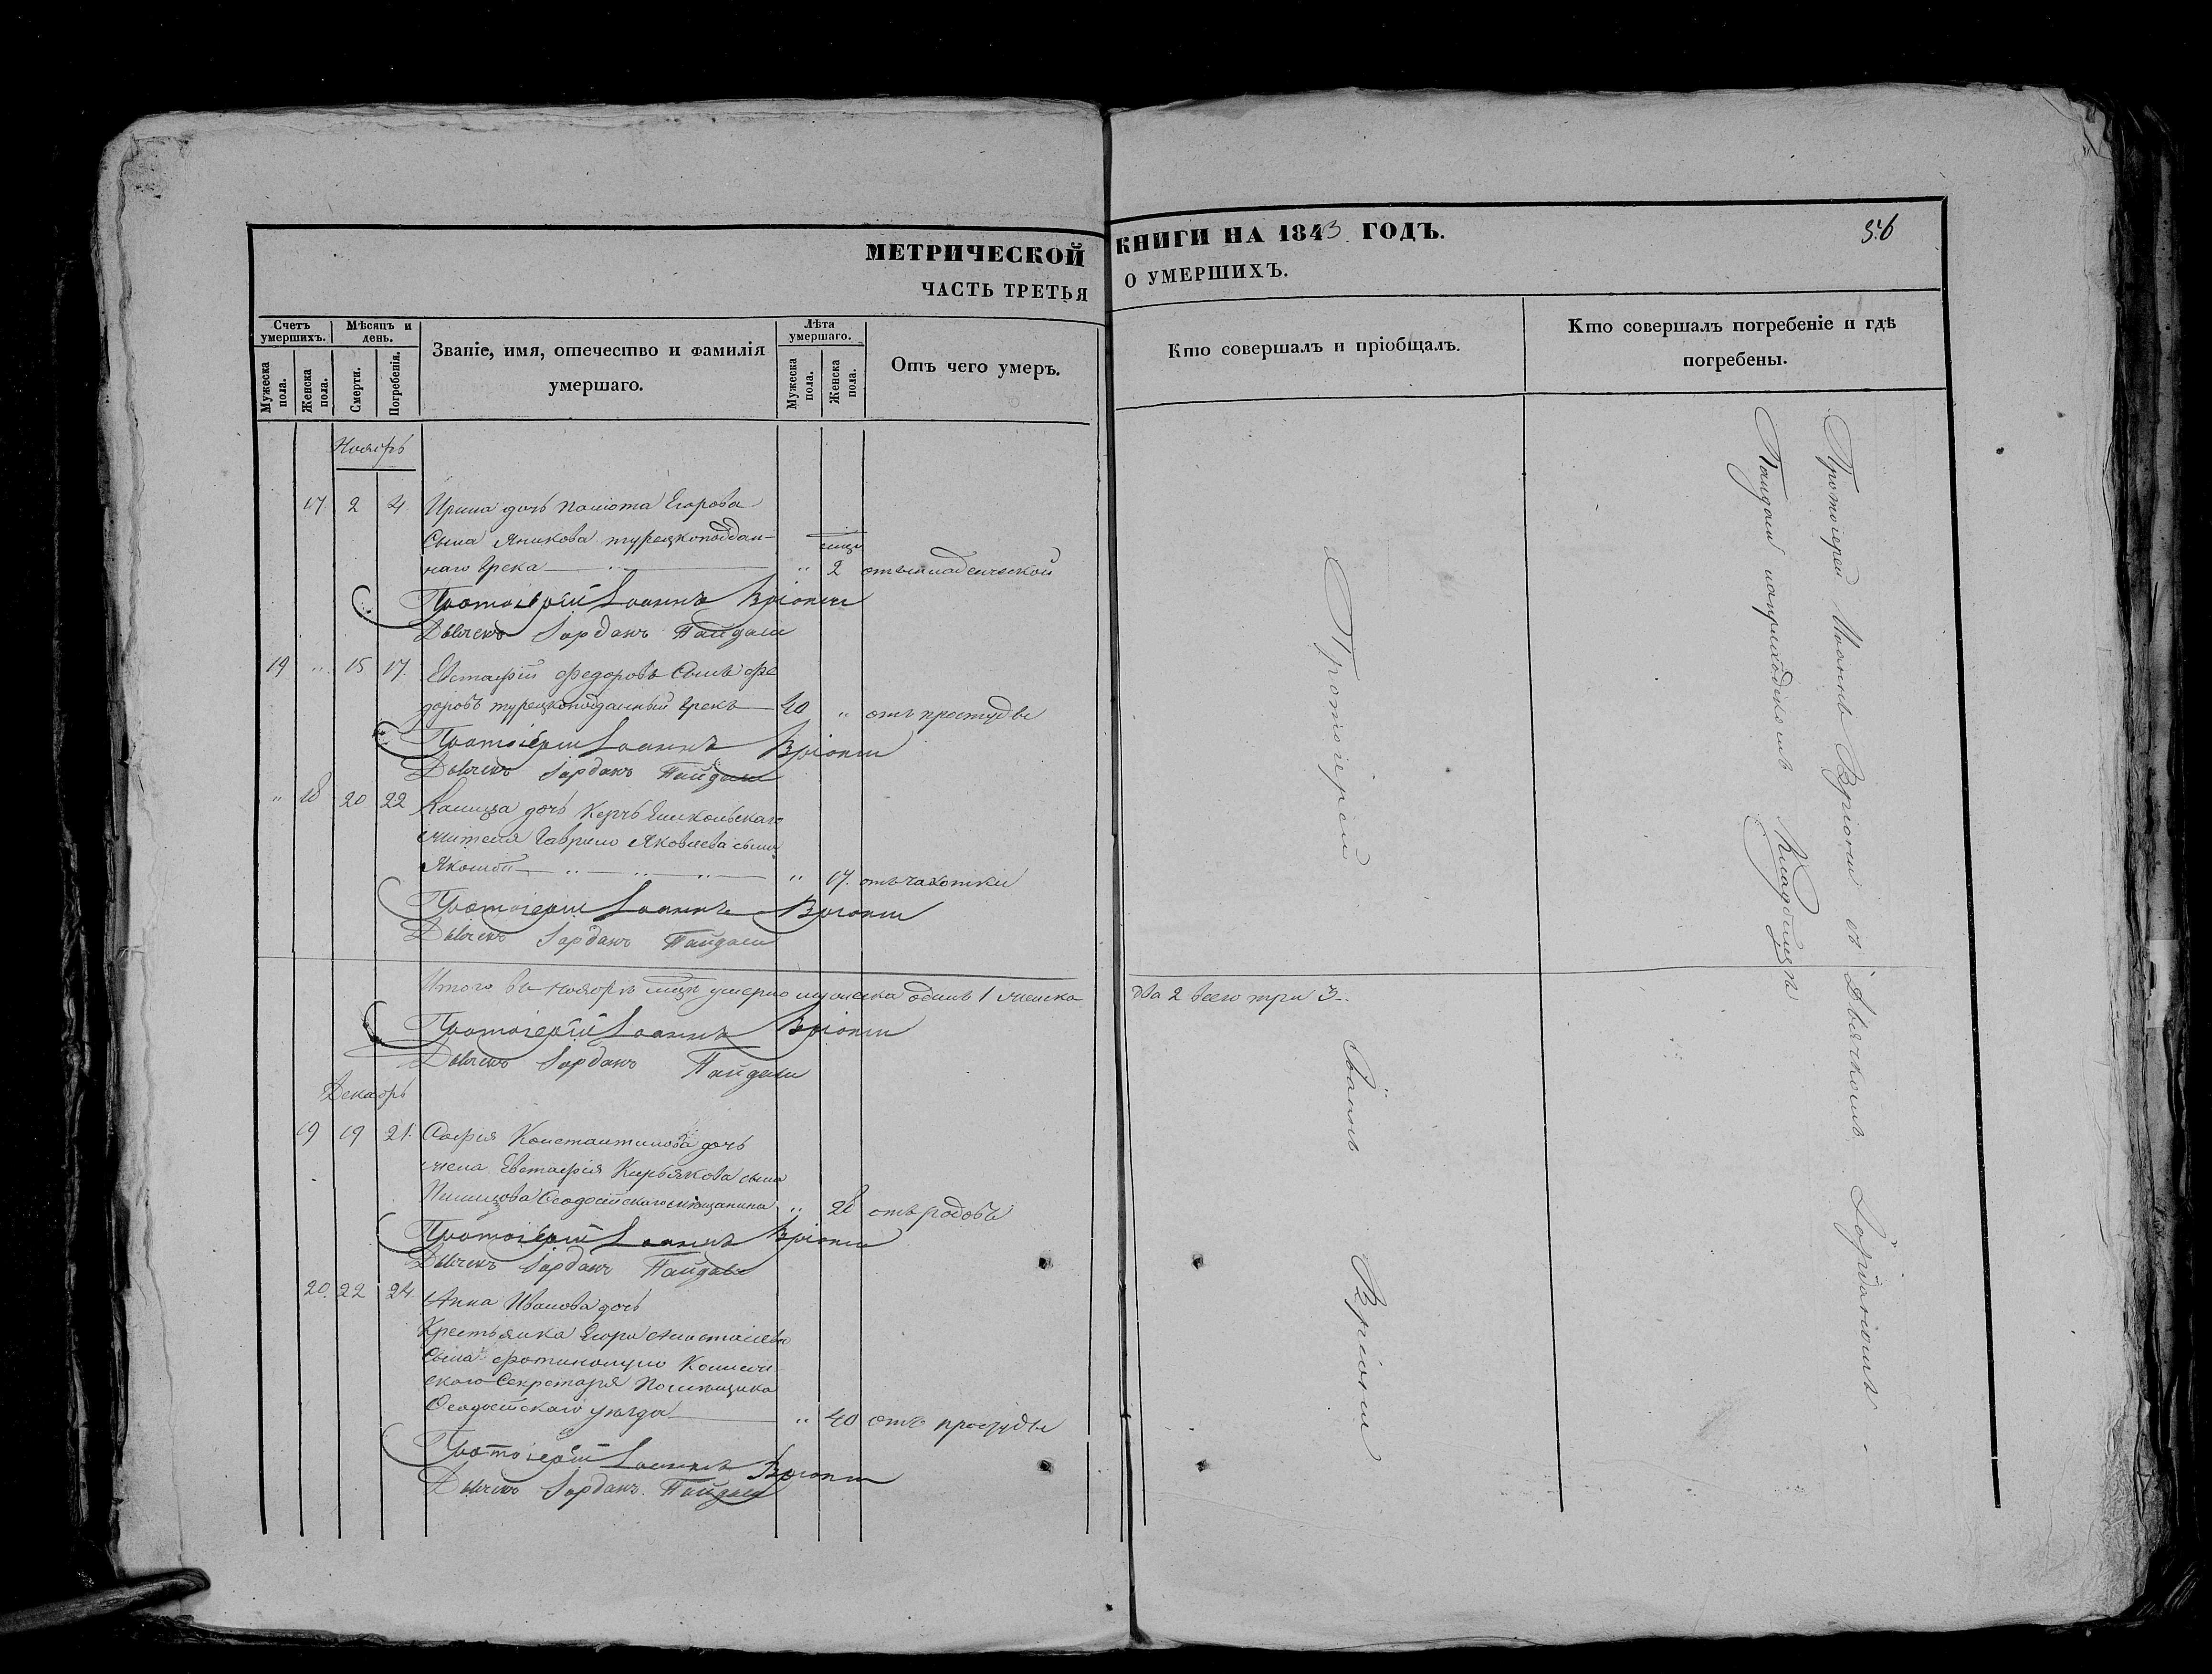 МЕТРИЧЕСКОЙ КНИГИ НА 1843 ГОДЪ.
ЧАСТЬ ТРЕТЬЯ О УМЕРШИХЪ.
Счетъ умершихъ.
Мужеска пола.
Женска пола.
Мѣсяцъ и день.
Смерти.
Погребенія.
Званіе, имя, отечество и фамилія
умершаго.
Лѣта умершаго.
Мужеска пола.
Женска пола.
Отъ чего умеръ.
Кто совершалъ и пріобщалъ.
Кто совершалъ погребеніе и гдѣ
погребены.
Ноябрь
17 2 4 Ирина дочь Егорова
сына турецкоподдан-
наго Грека " 2 отъ младенческой
Протоіерей Іоаннъ Вріони
Дьячекъ Іорданъ Пайдаси
19 " 15 17. Евстафій Федоровъ сынъ Фе
доровъ турецкоподданный Грекъ 40 " отъ простуды
Протоіерей Іоаннъ Вріони
Дьячекъ Іорданъ Пайдаси
" 18 20 22 дочь Керчь Еникольскаго
жителя Гаврило Яковлева сына
" 17. отъ чахотки
Протоіерей Іоаннъ Вріони
Дьячекъ Іорданъ Пайдаси
Итого въ ноябрѣ умерло мужеска одинъ 1 женска два 2 всего три 3..
Протоіерей Іоаннъ Вріони
Дьячекъ Іорданъ Пайдаси
Декабрь
19 19 21. Софія Константинова дочь
жена Евстафія Кирьякова сына
Феодосійскаго мѣщанина " 28 отъ родовъ
Протоіерей Іоаннъ Вріони
Дьячекъ Іорданъ Пайдаси
20. 22 24 Анна Иванова дочь
Крестьянка
сына
скаго Секретаря Помѣщика
Феодосійскаго уѣзда " 40 отъ простуды
Протоіерей Іоаннъ Вріони
Дьячекъ Іорданъ Пайдаси
Протоіерей Іоаннъ Вріони
Протоіерей Іоаннъ Вріони съ Дьячкомъ Іорданомъ
Пайдаси на приходскомъ Кладбищѣ